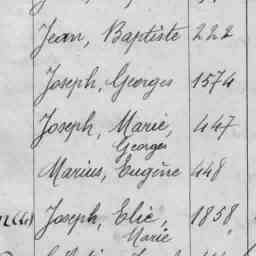 Jean, Baptiste 222
Joseph, Georges 1574
Joseph, Marie, 447
Georges
Marius, Eugène 448
Joseph, Elie, 1858
Marie